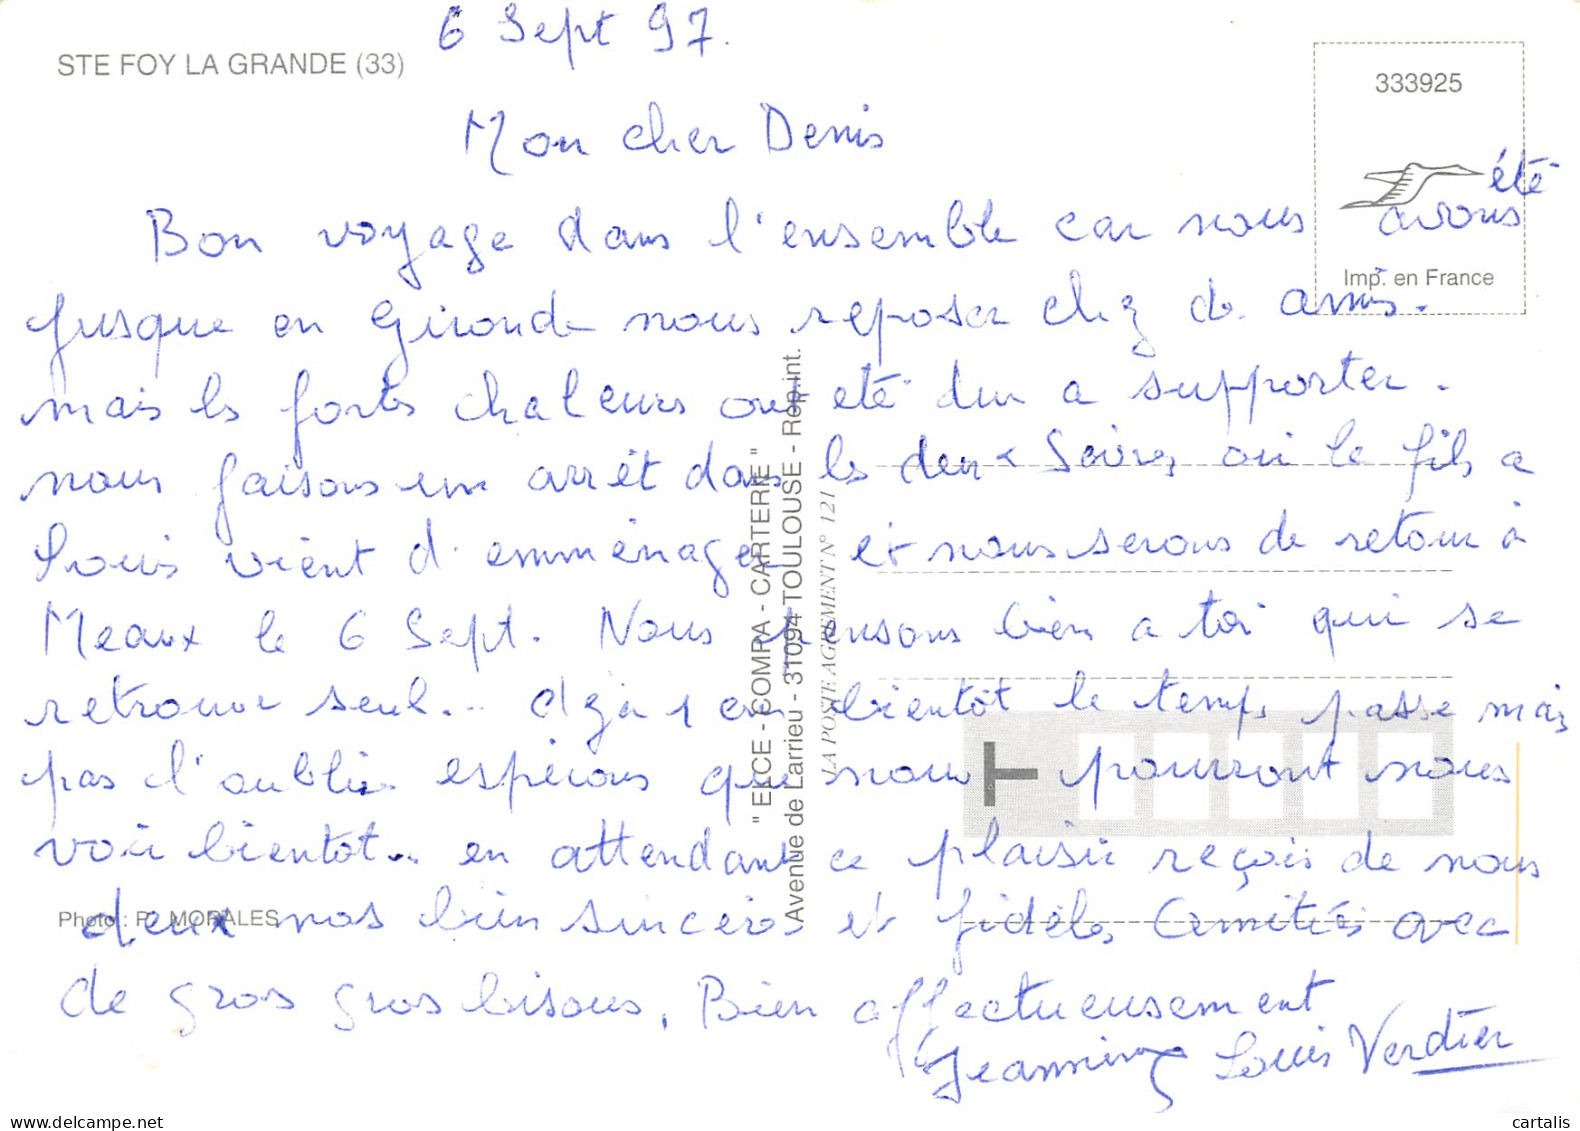 6 Sept 97.
STE FOY LA GRANDE (33)
333925
Mon cher Denis
été
Bon voyage dans l'ensemble car nous avons
Imp. en France
jusque en Gironde nous reposer chez de amis.
mais les fortes chaleurs ont été dur a supporter.
nous faisons un arrêt dans les deux Sèvres où le fils a
Louis vient d'emménager et nous serons de retour à
Meaux le 6 Sept. Nous pensons bien a toi qui se
retrouve seul... déjà 1 an bientôt le temps passe mais
pas l'oubli espérons que nous pourront nous
voir bientôt... en attendant ce plaisir reçois de nous
deux nos bien sincères et fidèles Amitiés avec
Photo : P. MORALES
de gros gros bisous. Bien affectueusement
Jeannine Louis Verdier
" ELCE - COMRA - CARTERIE "
Avenue de Larrieu - 31094 TOULOUSE - Rep.int.
LA POSTE AGREMENT N° 121
T
delcampe.net
cartalis